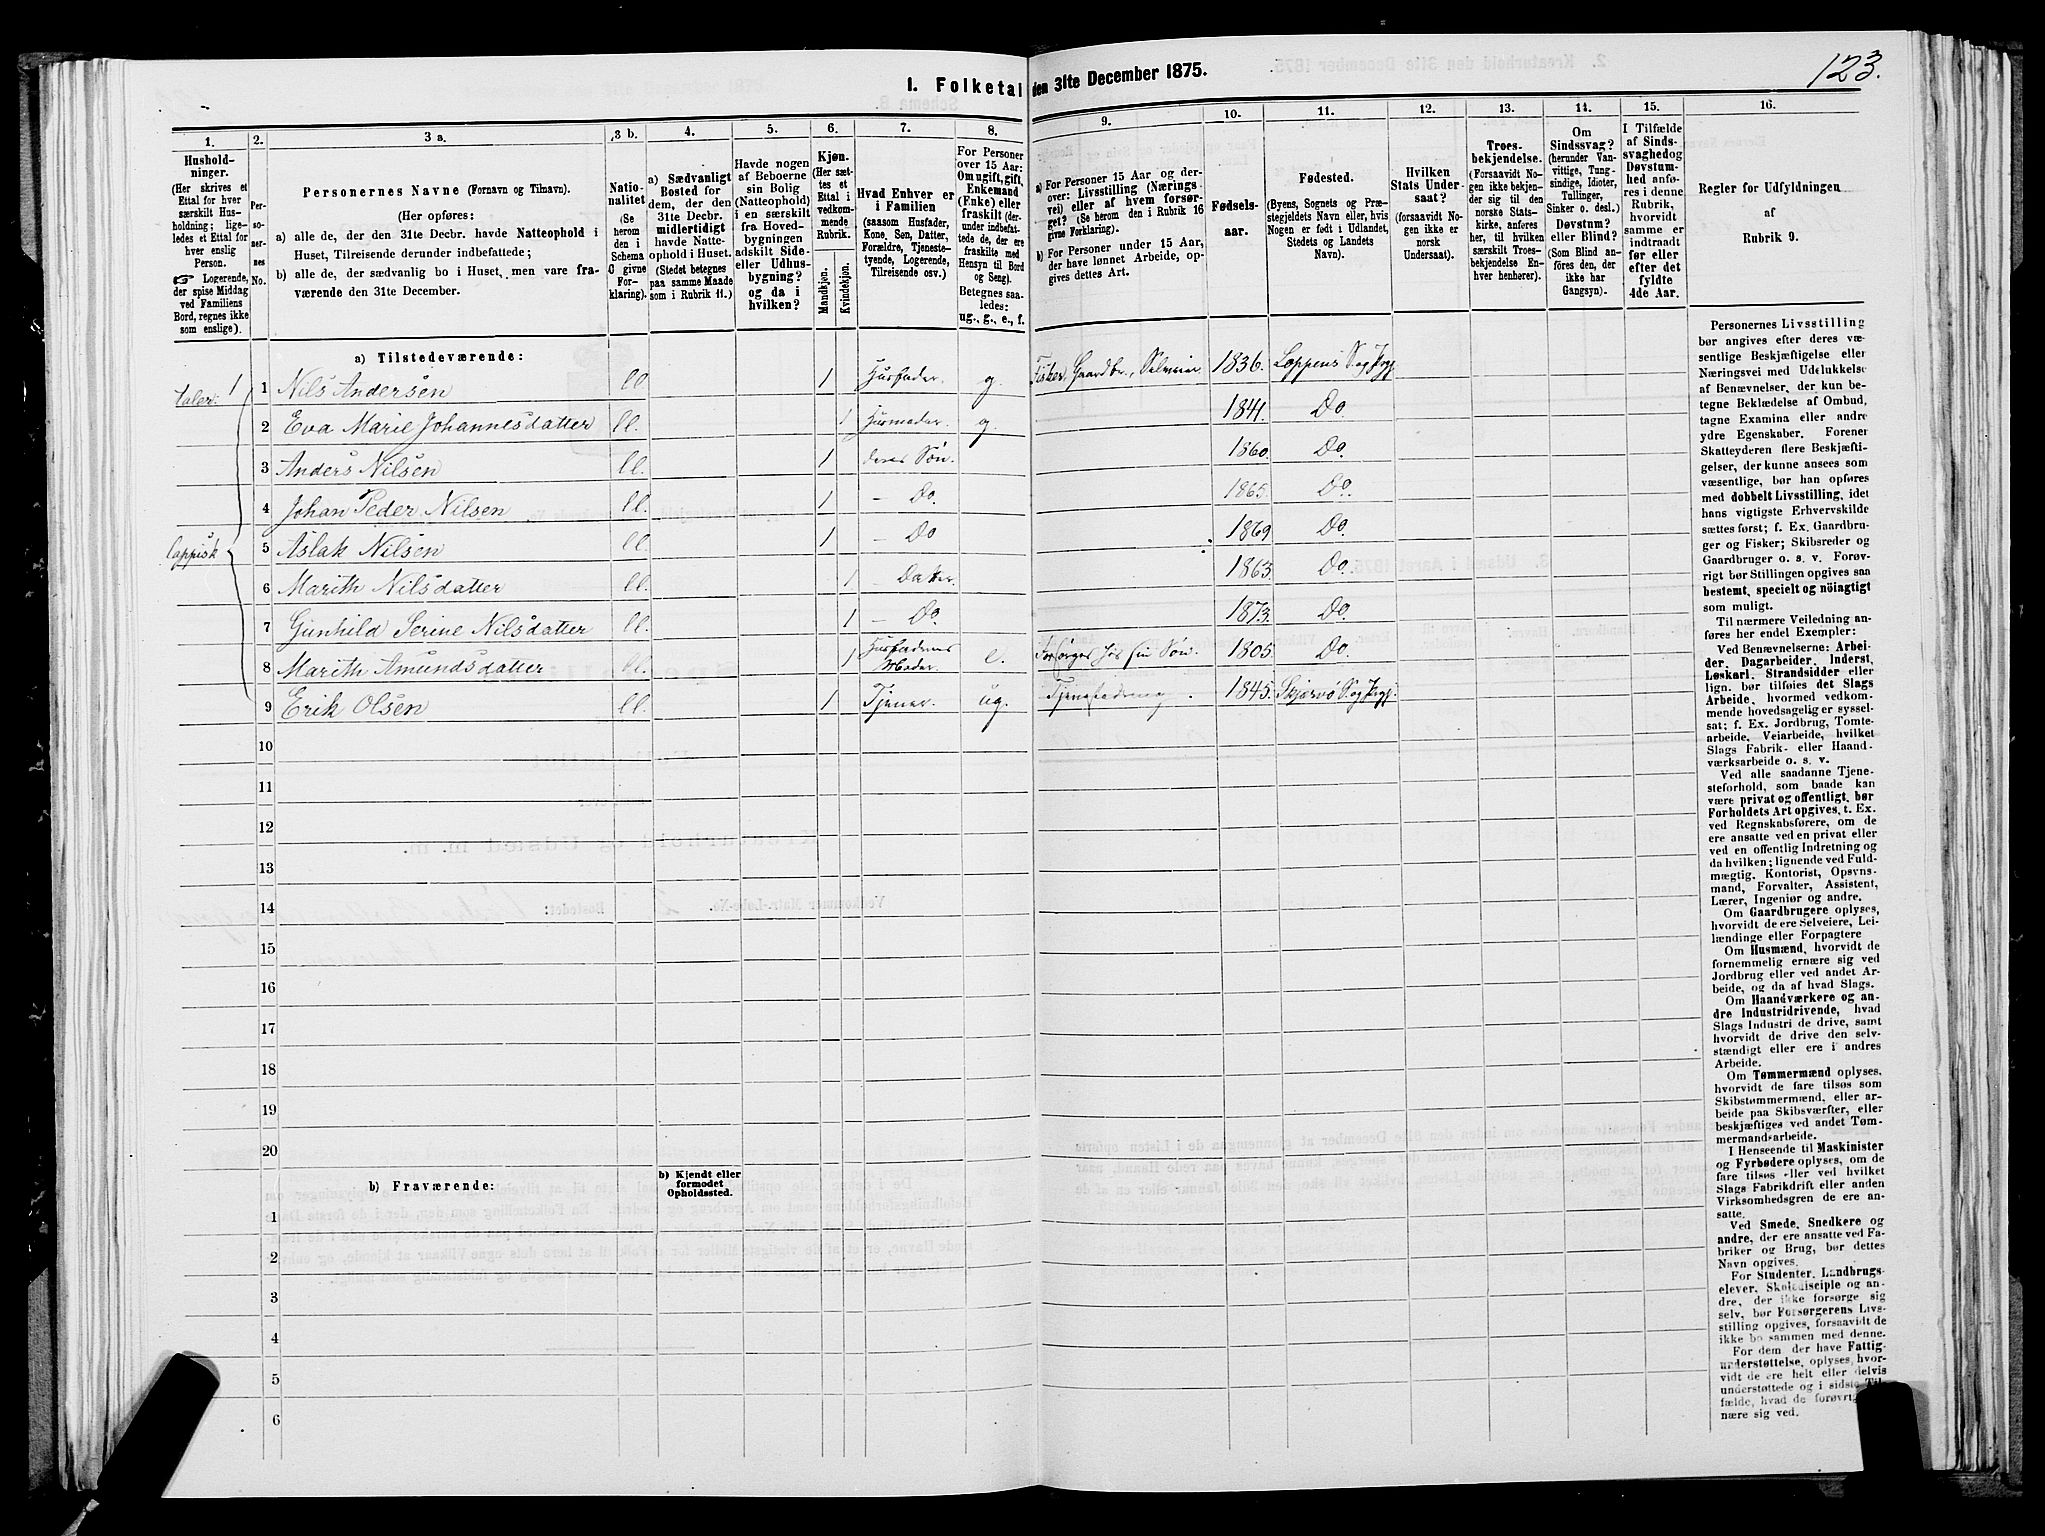 123.
1. Folketal den 31te December 1875.
1.
Hushold-
ninger.
(Her skrives et
Ettal for hver
særskilt Hus-
holdning; lige-
ledes et Ettal for
hver enslig
Person.
☞ Logerende,
der spise Middag
ved Familiens
Bord, regnes ikke
som enslige).
2.
Per-
so-
ner-
nes
No.
3 a.
Personernes Navne (Fornavn og Tilnavn).
(Her opføres:
a) alle de, der den 31te Decbr. havde Natteophold i
Huset, Tilreisende derunder indbefattede;
b) alle de, der sædvanlig bo i Huset, men vare fra-
værende den 31te December.
3 b.
Natio-
nalitet
(Se
herom
den i
Schema
C givne
For-
klaring).
4.
a) Sædvanligt
Bosted for
dem, der den
31te Decbr.
midlertidigt
havde Natte-
ophold i Huset.
(Stedet betegnes
paa samme Maade
som i Rubrik 11.)
5.
Havde nogen
af Beboerne
sin Bolig
(Natteophold)
i en særskilt
fra Hoved-
bygningen
adskilt Side-
eller Udhus-
bygning?
og da i
hvilken?
6.
Kjøn.
(Her sæt-
tes et
Ettal i
vedkom-
mende
Rubrik.
Mandkjøn.
Kvindekjøn.
7.
Hvad Enhver er
i Familien
(saasom Husfader,
Kone, Søn, Datter,
Forældre, Tjeneste-
tyende, Logerende,
Tilreisende osv.)
8.
For Personer
over 15 Aar:
Om ugift, gift,
Enkemand
(Enke) eller
fraskilt (der-
under indbefat-
tede de, der ere
fraskilte med
Hensyn til Bord
og Seng).
Betegnes saa-
ledes:
ug., g., e., f.
9.
a) For Personer 15 Aar og der-
over: Livsstilling (Nærings-
vei) eller af hvem forsør-
get? (Se herom den i Rubrik 16
givne Forklaring).
b) For Personer under 15 Aar,
der have lønnet Arbeide, op-
gives dettes Art.
10.
Fødsels-
aar.
11.
Fødested.
(Byens, Sognets og Præ-
stegjeldets Navn eller, hvis
Nogen er født i Udlandet,
Stedets og Landets
Navn).
12.
Hvilken
Stats Under-
saat?
(forsaavidt No-
gen ikke er
norsk
Undersaat).
13.
Troes-
bekjendelse.
(Forsaavidt No-
gen ikke bekjen-
der sig til den
norske Stats-
kirke, anføres
her, til hvilken
særskilt Troes-
bekjendelse En-
hver henhører).
14.
Om
Sindssvag?
(herunder Van-
vittige, Tung-
sindige, Idioter,
Tullinger,
Sinker o. desl.)
Døvstum?
eller Blind?
(Som Blind an-
føres den, der
ikke har
Gangsyn).
15.
I Tilfælde
af Sinds-
svaghed og
Døvstum-
hed anfø-
res i denne
Rubrik,
hvorvidt
samme er
indtraadt
før eller
efter det
fyldte
4de Aar.
16.
Regler for Udfyldningen
af
Rubrik 9.
a) Tilstedeværende:
taler: 1 1 Nils Andersen ll 1 Husfader. g. Fisker, Gaardbr., Selveier 1836. Loppens S. og Prgj.
2 Eva Marie Johannesdatter ll. 1 Husmoder. g. 1841. Do.
3 Anders Nilsen ll. 1 deres Søn. 1860. Do.
4 Johan Peder Nilsen ll. 1 – Do. 1865. Do.
lappisk 5 Aslak Nilsen ll. 1 – Do 1869 Do.
6 Marith Nilsdatter ll. 1 – Datter. 1863. Do.
7 Gunhild Serine Nilsdatter ll. 1 – Do. 1873. Do.
8 Marith Amundsdatter ll. 1 Husfaderens Moder. e. Forsørges hos sin Søn. 1805. Do.
9 Erik Olsen ll. 1 Tjener. ug. 1845. Skjervø S. og Prgj.
10
11
12
13
14
15
16
17
18
19
20
b) Fraværende:
b) Kjendt eller
formodet
Opholdssted.
1
2
3
4
5
6
Personernes Livsstilling
bør angives efter deres væ-
sentlige Beskjæftigelse eller
Næringsvei med Udelukkelse
af Benævnelser, der kun be-
tegne Beklædelse af Ombud,
tagne Examina eller andre
ydre Egenskaber. Forener
Skatteyderen flere Beskjæfti-
gelser, der kunne ansees som
væsentlige, bør han opføres
med dobbelt Livsstilling, idet
hans vigtigste Erhvervskilde
sættes først; f. Ex. Gaardbru-
ger og Fisker; Skibsreder og
Gaardbruger o. s. v. Forøv-
rigt bør Stillingen opgives saa
bestemt, specielt og nöiagtigt
som muligt.
Til nærmere Veiledning an-
føres her endel Exempler:
Ved Benævnelserne: Arbei-
der, Dagarbeider, Inderst,
Løskarl, Strandsidder eller
lign. bør tilføies det Slags
Arbeide, hvormed vedkom-
mende hovedsagelig er syssel-
sat; f. Ex. Jordbrug, Tomte-
arbeide, Veiarbeide, hvilket
Slags Fabrik- eller Haand-
værksarbeide o. s. v.
Ved alle saadanne Tjene-
steforhold, som baade kan
være privat og offentligt, bør
Forholdets Art opgives, t. Ex.
ved Regnskabsførere, om de
ere ansatte ved en privat eller
ved en offentlig Indretning og
da hvilken; lignende ved Fuld-
mægtig, Kontorist, Opsyns-
mand, Forvalter, Assistent,
Lærer, Ingeniør og andre.
Om Gaardbrugere oplyses,
hvorvidt de ere Selveiere, Lei-
lændinge eller Forpagtere
Om Husmænd, hvorvidt de
fornemmelig ernære sig ved
Jordbrug eller ved andet Ar-
beide, og da af hvad Slags.
Om Haandværkere og an-
dre Industridrivende, hvad
Slags Industri de drive, samt
hvorvidt de drive den selv-
stændigt eller ere i andres
Arbeide.
Om Tømmermænd oplyses,
hvorvidt de fare tilsøs som
Skibstømmermænd, eller ar-
beide paa Skibsværfter, eller
beskjæftiges ved andet Tøm-
mermandsarbeide.
I Henseende til Maskinister
og Fyrbødere oplyses, om de
fare tilsøs eller ved hvilket
Slags Fabrikdrift eller anden
Virksomhedsgren de ere an-
satte.
Ved Smede, Snedkere og
andre, der ere ansatte ved Fa-
briker og Brug, bør dettes
Navn opgives.
For Studenter, Landbrugs-
elever, Skoledisciple og an-
dre, der ikke forsørge sig
selv, bør Forsørgerens Livs-
stilling opgives, forsaavidt de
ikke bo sammen med denne.
For dem, der have Fattig-
understøttelse, oplyses, hvor-
vidt de ere helt eller delvis
understøttede og i sidste Til-
fælde, hvad de forøvrigt er-
nære sig ved.